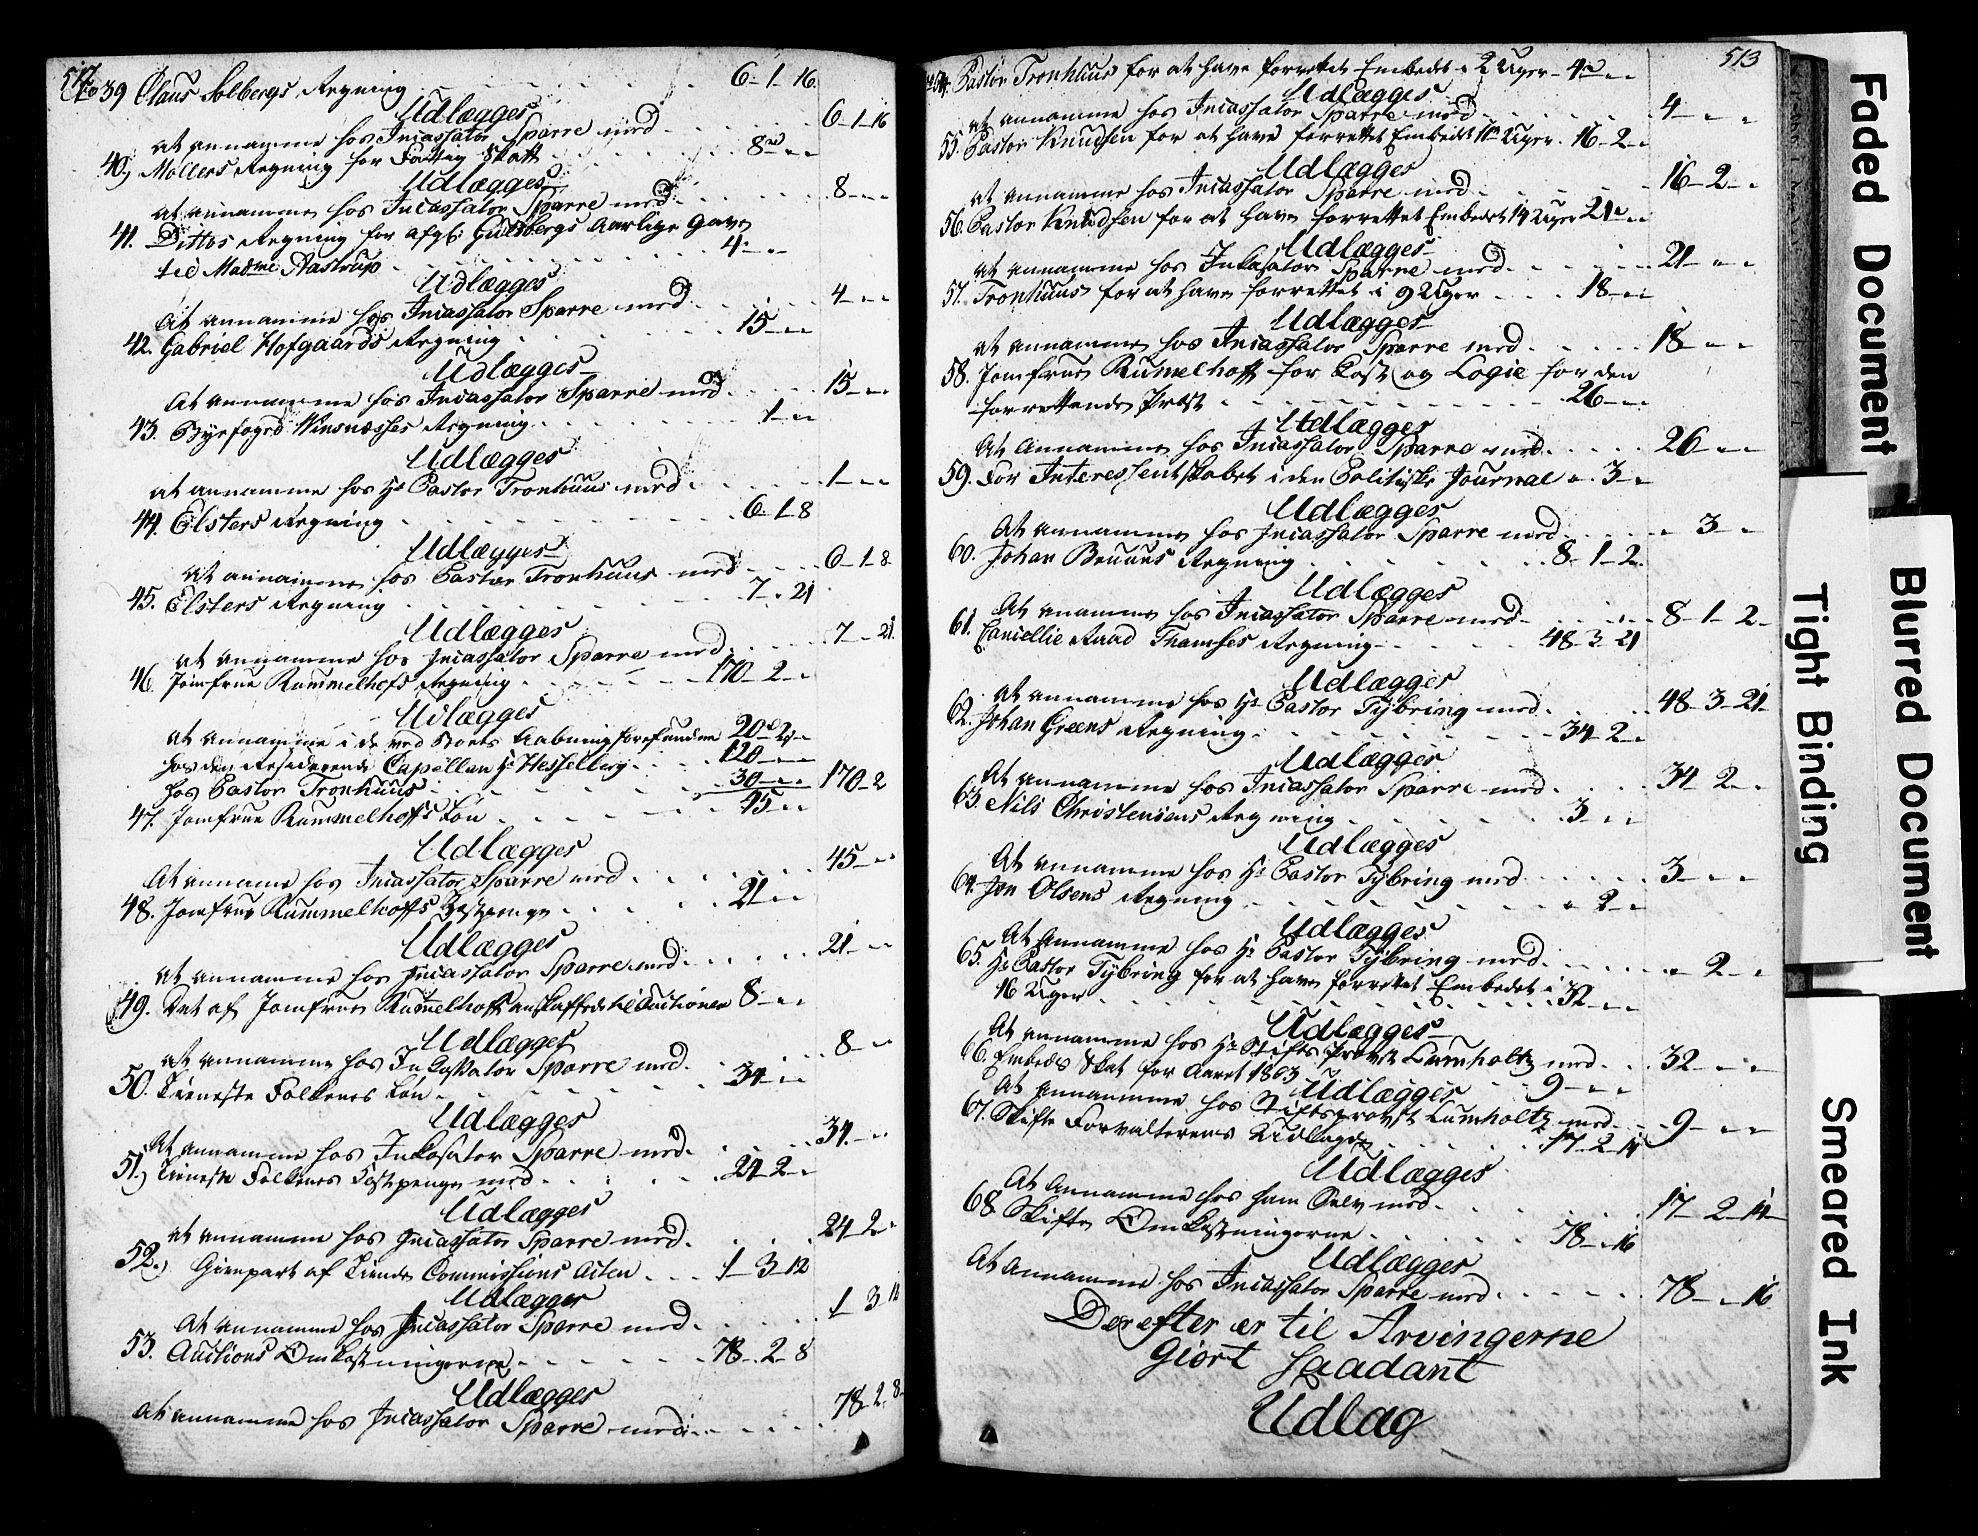 512
No 39 Claus Solbergs Regning 6-1-16
Udlægges
at annamme hos Incassator Sparre med 6-1-16
40.) Møllers Regning for Fattig Skatt 8 - -
Udlægges
at annamme hos Incassator Sparre med 8 - -
41. Dittos Regning for afg: Guldbergs Aarlige Gave
til Madme Aastrup 4 - -
Udlægges
at annamme hos Incassator Sparre med 4 - -
42. Gabriel Hofgaards Regning 15 - -
Udlægges
At annamme hos Incassator Sparre med 15 - -
43. Byefoged Wensnæsses Regning 1 - -
Udlægges
at annamme hos Hr Pastor Tronhuus med 1 - -
44. Elsters Regning 6-1-8
Udlægges
at annamme hos Pastor Tronhuus med 6-1-8
45. Elsters Regning 7 - 21
Udlægges
at annamme hos Incassator Sparre med 7 - 21
46. Jomfrue Rummelhofs Regning 170-2 -
Udlægges
at annamme i de ved Boets Aabning forefundne 20-2 -
hos den Residerende Capellan Hr Hesselberg 120 - -
hos Pastor Tronhuus 30 - - 170-2
47. Jomfrue Rummelhoffs Løn 45 - -
Udlægges
At annamme hos Incassator Sparre med 45 - -
48. Jomfrue Rummelhoffs Kostpenge 21 - -
Udlægges
at annamme hos Incassator Sparre med 21 - -
49. Det af Jomfrue Rummelhoff anskaffede til Auctionen 8 - -
Udlægges
at annamme hos Inkassator Sparre med 8 - -
50. Tieneste Folkenes Løn 34 - -
Udlægges
At annamme hos Inkasator Sparre med 34 - -
51.) Tieneste Folkenes Kostpenge med 24-2 -
Udlægges
at annamme hos Incassator Sparre med 24-2 -
52.) Gienpart af Tiende Commissions Acten 1-3-12
Udlægges
At annamme hos Incassator Sparre med 1-3-12
53. Auctions Omkostningerne 78-2-8
Udlægges
at annamme hos Incassator Sparre med 78-2-8
513
No 54. Pastor Tronhuus for at have forrettet Embedet i 2 Uger 4 - -
Udlægges
at annamme hos Incassator Sparre med 4 - -
55. Pastor Knudsen for at have forrettet Embedet 11 Uger 16-2 -
Udlægges
at annamme hos Incassator Sparre med 16-2 -
56. Pastor Knudsen for at have forrettet Embedet 14 Uger 21 - -
Udlægges
at annamme hos Inkasator Sparre med 21 - -
57. Tronhuus for at have forrettet i 9 Uger 18 - -
Udlægges
at annamme hos Incassator Sparre med 18 - -
58. Jomfrue Rumelhoff for Kost og Logie for den
forrettende Præst 26 - -
Udlægges
At annamme hos Incassator Sparre med 26 - -
59. For Interessentskabet i den Politiske Journal - 3 -
Udlægges
At annamme hos Incassator Sparre med - 3 -
60. Johan Bruuns Regning 8-1-2
Udlægges
At annamme hos Incassator Sparre med 8-1-2
61. Cancellie Raad Thamses Regning 48-3-21
Udlægges
at annamme hos Hr Pastor Tybring med 48-3-21
62. Johan Greens Regning 34-2 -
Udlægges
At annamme hos Incassator Sparre med 34-2 -
63. Nils Christensens Regning 3 - -
Udlægges
At annamme hos Hr Pastor Tybring med 3 - -
64. Jon Olsens Regning - 2 -
Udlægges
At annamme hos Hr Pastor Tybring med - 2 -
65. Hr Pastor Tybring for at have forrettet Embedet i
16 Uger 32 - -
Udlægges
At annamme hos Hr Stifts Provst Lumholtz med 32 - -
66. Embeds Skat for Aaret 1803 9 - -
Udlægges
At annamme hos Stiftsprovst Lumholtz med 9 - -
67. Skifte Forvalterens Udlæg 17-2-14
Udlægges
At annamme hos ham Selv med 17-2-14
68 Skifte Omkostningerne 78 - 16
Udlægges
At annamme hos Incassator Sparre med 78 - 16
Derefter er til Arvingerne
giort Saadant
Udlæg
Faded Document
Tight Binding
Blurred Document
Smeared Ink